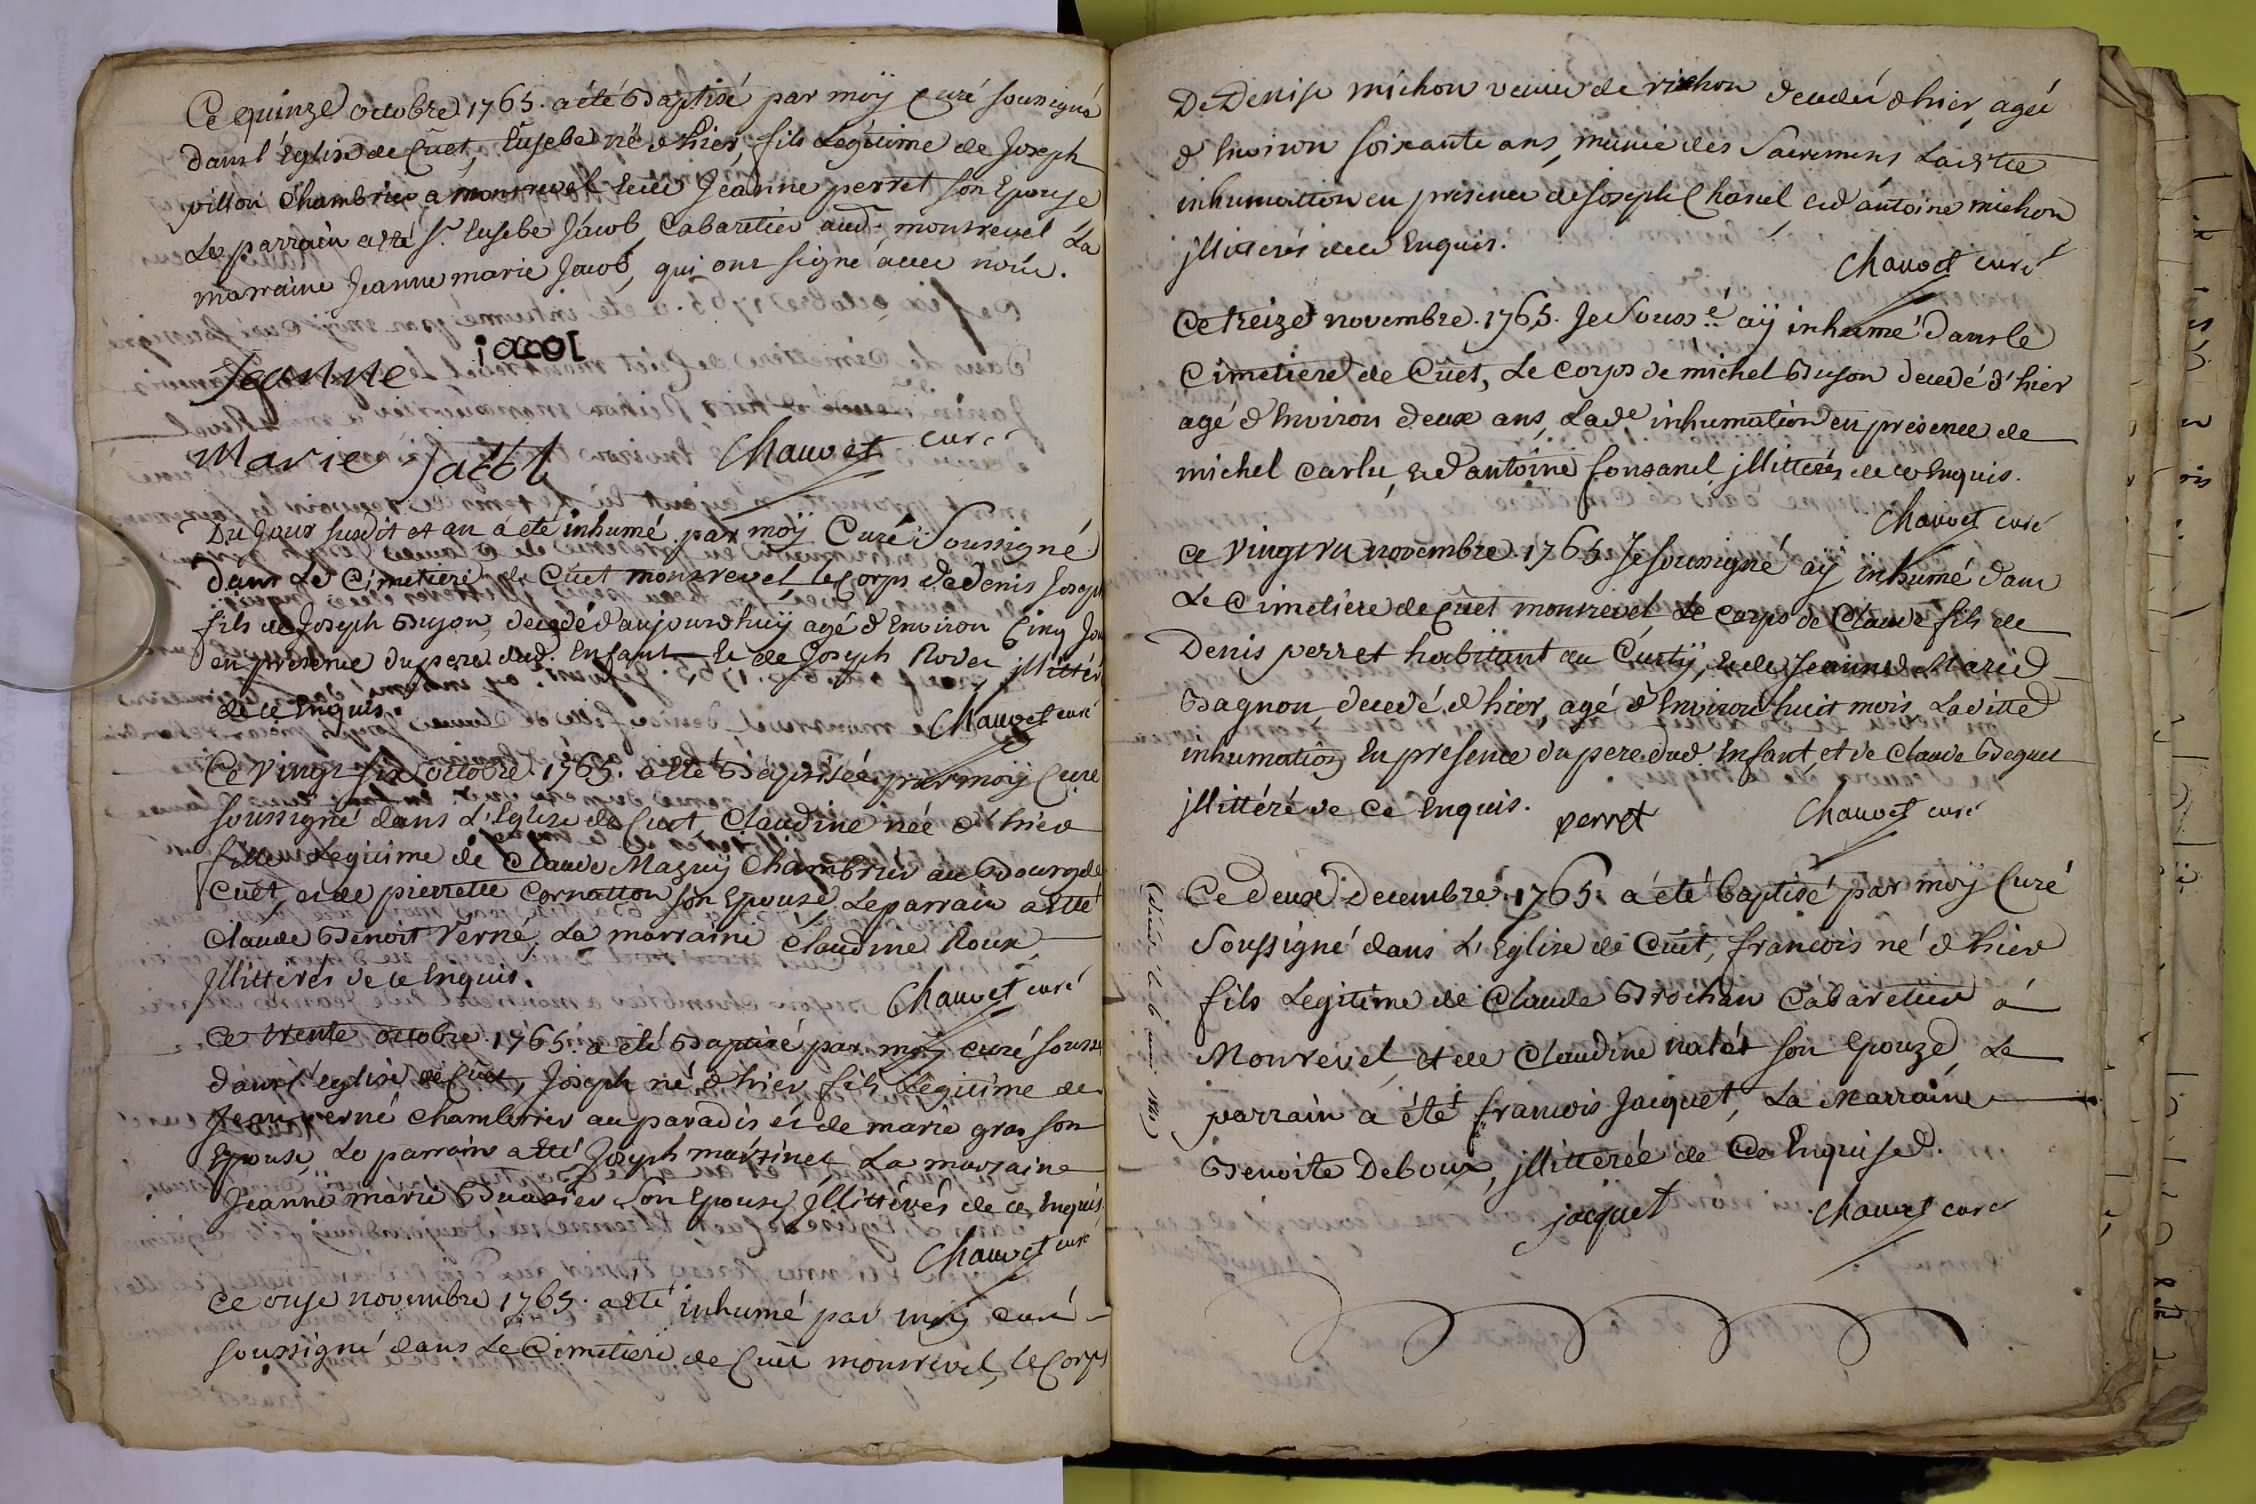 Ce quinze octobre 1765. a été Baptisé par moÿ Curé soussigné
dans l'Eglise de Cuet, Eusebe né d'hier, fils Legitime de Joseph
pillon chambrier a montrevel et de Jeanne perret son Epouse
Le parrain a été Sr. Eusebe Jacob, Cabaretier aud. montrevel La
marraine Jeanne marie Jacob, qui ont signé avec nous.
jacob
Jeanne
Marie Jacob Chauvet curé
Du Jour susdit et an a été inhumé par moÿ Curé Soussigné
dans Le Cimetiere de Cuet montrevel, le Corps de denis Joseph
fils de Joseph Buyon, decedé d'aujourdhuÿ agé d'Environ Cinq Jou
en presence du pere dud. Enfant Et de Joseph Rover illittér
de ce Enquis.
Chauvet curé
Ce vingt six octobre 1765. a été Baptisée par moÿ Curé
soussigné dans L'Eglise de Cuet, Claudine née d'hier
fille Legitime de Claude Mazuÿ Chambrier au Bourg de
Cuet, et de pierrette Cornatton son Epouse, Le parrain a été
Claude Benoit Verne, La marraine Claudine Roux
Jllitterés de ce Enquis.
Chauvet curé
Ce trente octobre 1765. a été Baptisé par moÿ curé souss
dans l'eglise de Cuet, Joseph né d'hier fils Legitime de
Jean verne chambrier au paradis et de marie gras son
Epouse, Le parrain a été Joseph martinet La marraine
Jeanne marie Buatier son Epouse, Jllittérés de ce Enquis
Chauvet curé
Ce onze novembre 1765. a été inhumé par moÿ curé
soussigné dans Le Cimetiere de Cuet montrevel, le Corps
De Denise michon veuve de richon decedée d'hier, agée
d'Environ soixante ans, munie des Sacremens Laditte
inhumation en presence de Joseph Chanel, et d'antoine michon
jllitterés de ce Enquis.
Chauvet curé
Ce treize novembre 1765. Je Souss.é aÿ inhumé dans le
Cimetiere de Cuet, Le Corps de michel Buyon decedé d'hier
agé d'Environ deux ans, Lad.e inhumation en presence de
michel Carlu, et d'antoine fonsanel, jllitterés de ce Enquis.
Chauvet curé
Ce vingt un novembre 1765 Je soussigné aÿ inhumé dans
Le Cimetiere de Cuet montrevel Le Corps de Claude fils de
Denis perret habitant du Curtÿ, et de Jeanne Marie
Bagnon, decedé d'hier, agé d'Environ huit mois, Laditte
inhumation En presence du pere dud. Enfant, et de Claude Beguet
jllittéré de ce Enquis.
perret Chauvet curé
Ce deux Decembre 1765. a été Baptisé par moÿ Curé
Soussigné dans L'Eglise de Cuet, francois né d'hier
fils Legitime de Claude Brochan Cabaretier á
Monrevel, et de Claudine valet son Epouze Le
parrain a été francois Jacquet, La Marraine
Benoite Deboux, jllitterée de Ce Enquise.
jacquet Chauvet curé